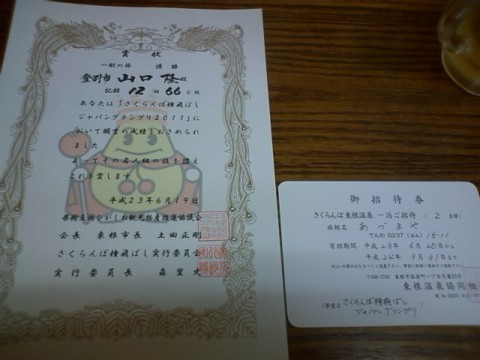 賞状
一般の部 優勝
登別市 山口 隆 殿
記録 12m 66cm
あなたは「さくらんぼ種飛ばし
ジャパングランプリ2011」に
おいて頭書の成績をおさめられ
ました
よってその名人級の技を讃え
これを賞します
平成23年6月19日
会長 東根市長 土田正剛
さくらんぼ種飛ばし実行委員会
実行委員長 森里史
御招待券
さくらんぼ東根温泉 一泊ご招待 (2名様)
旅館名 あづまや
でんわ 0237
有効期間 平成23年 6月20日から
平成24年
東根温泉協同組
(事業名) さくらんぼ種飛ばし
ジャパングランプリ